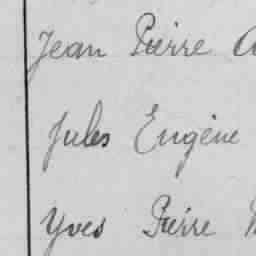 Jean Pierre
Jules Eugène
Yves Pierre